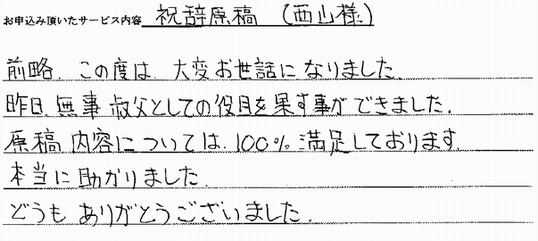 お申込み頂いたサービス内容 祝辞原稿 (西山様)
前略、この度は、大変お世話になりました。
昨日、無事叔父としての役目を果す事ができました。
原稿内容については、100%満足しております。
本当に助かりました。
どうもありがとうございました。